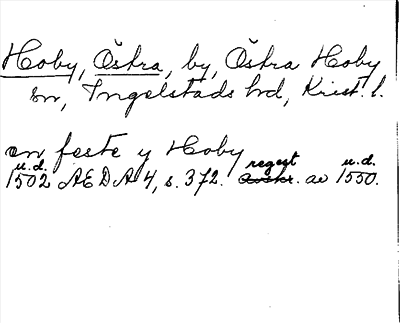 Hoby, Östra, by, Östra Hoby
sn, Ingelstads hd, Krist. l.
en feste y Hoby
u.d. regest u.d.
1502 AEDA 4, s. 372. avskr. av 1550.